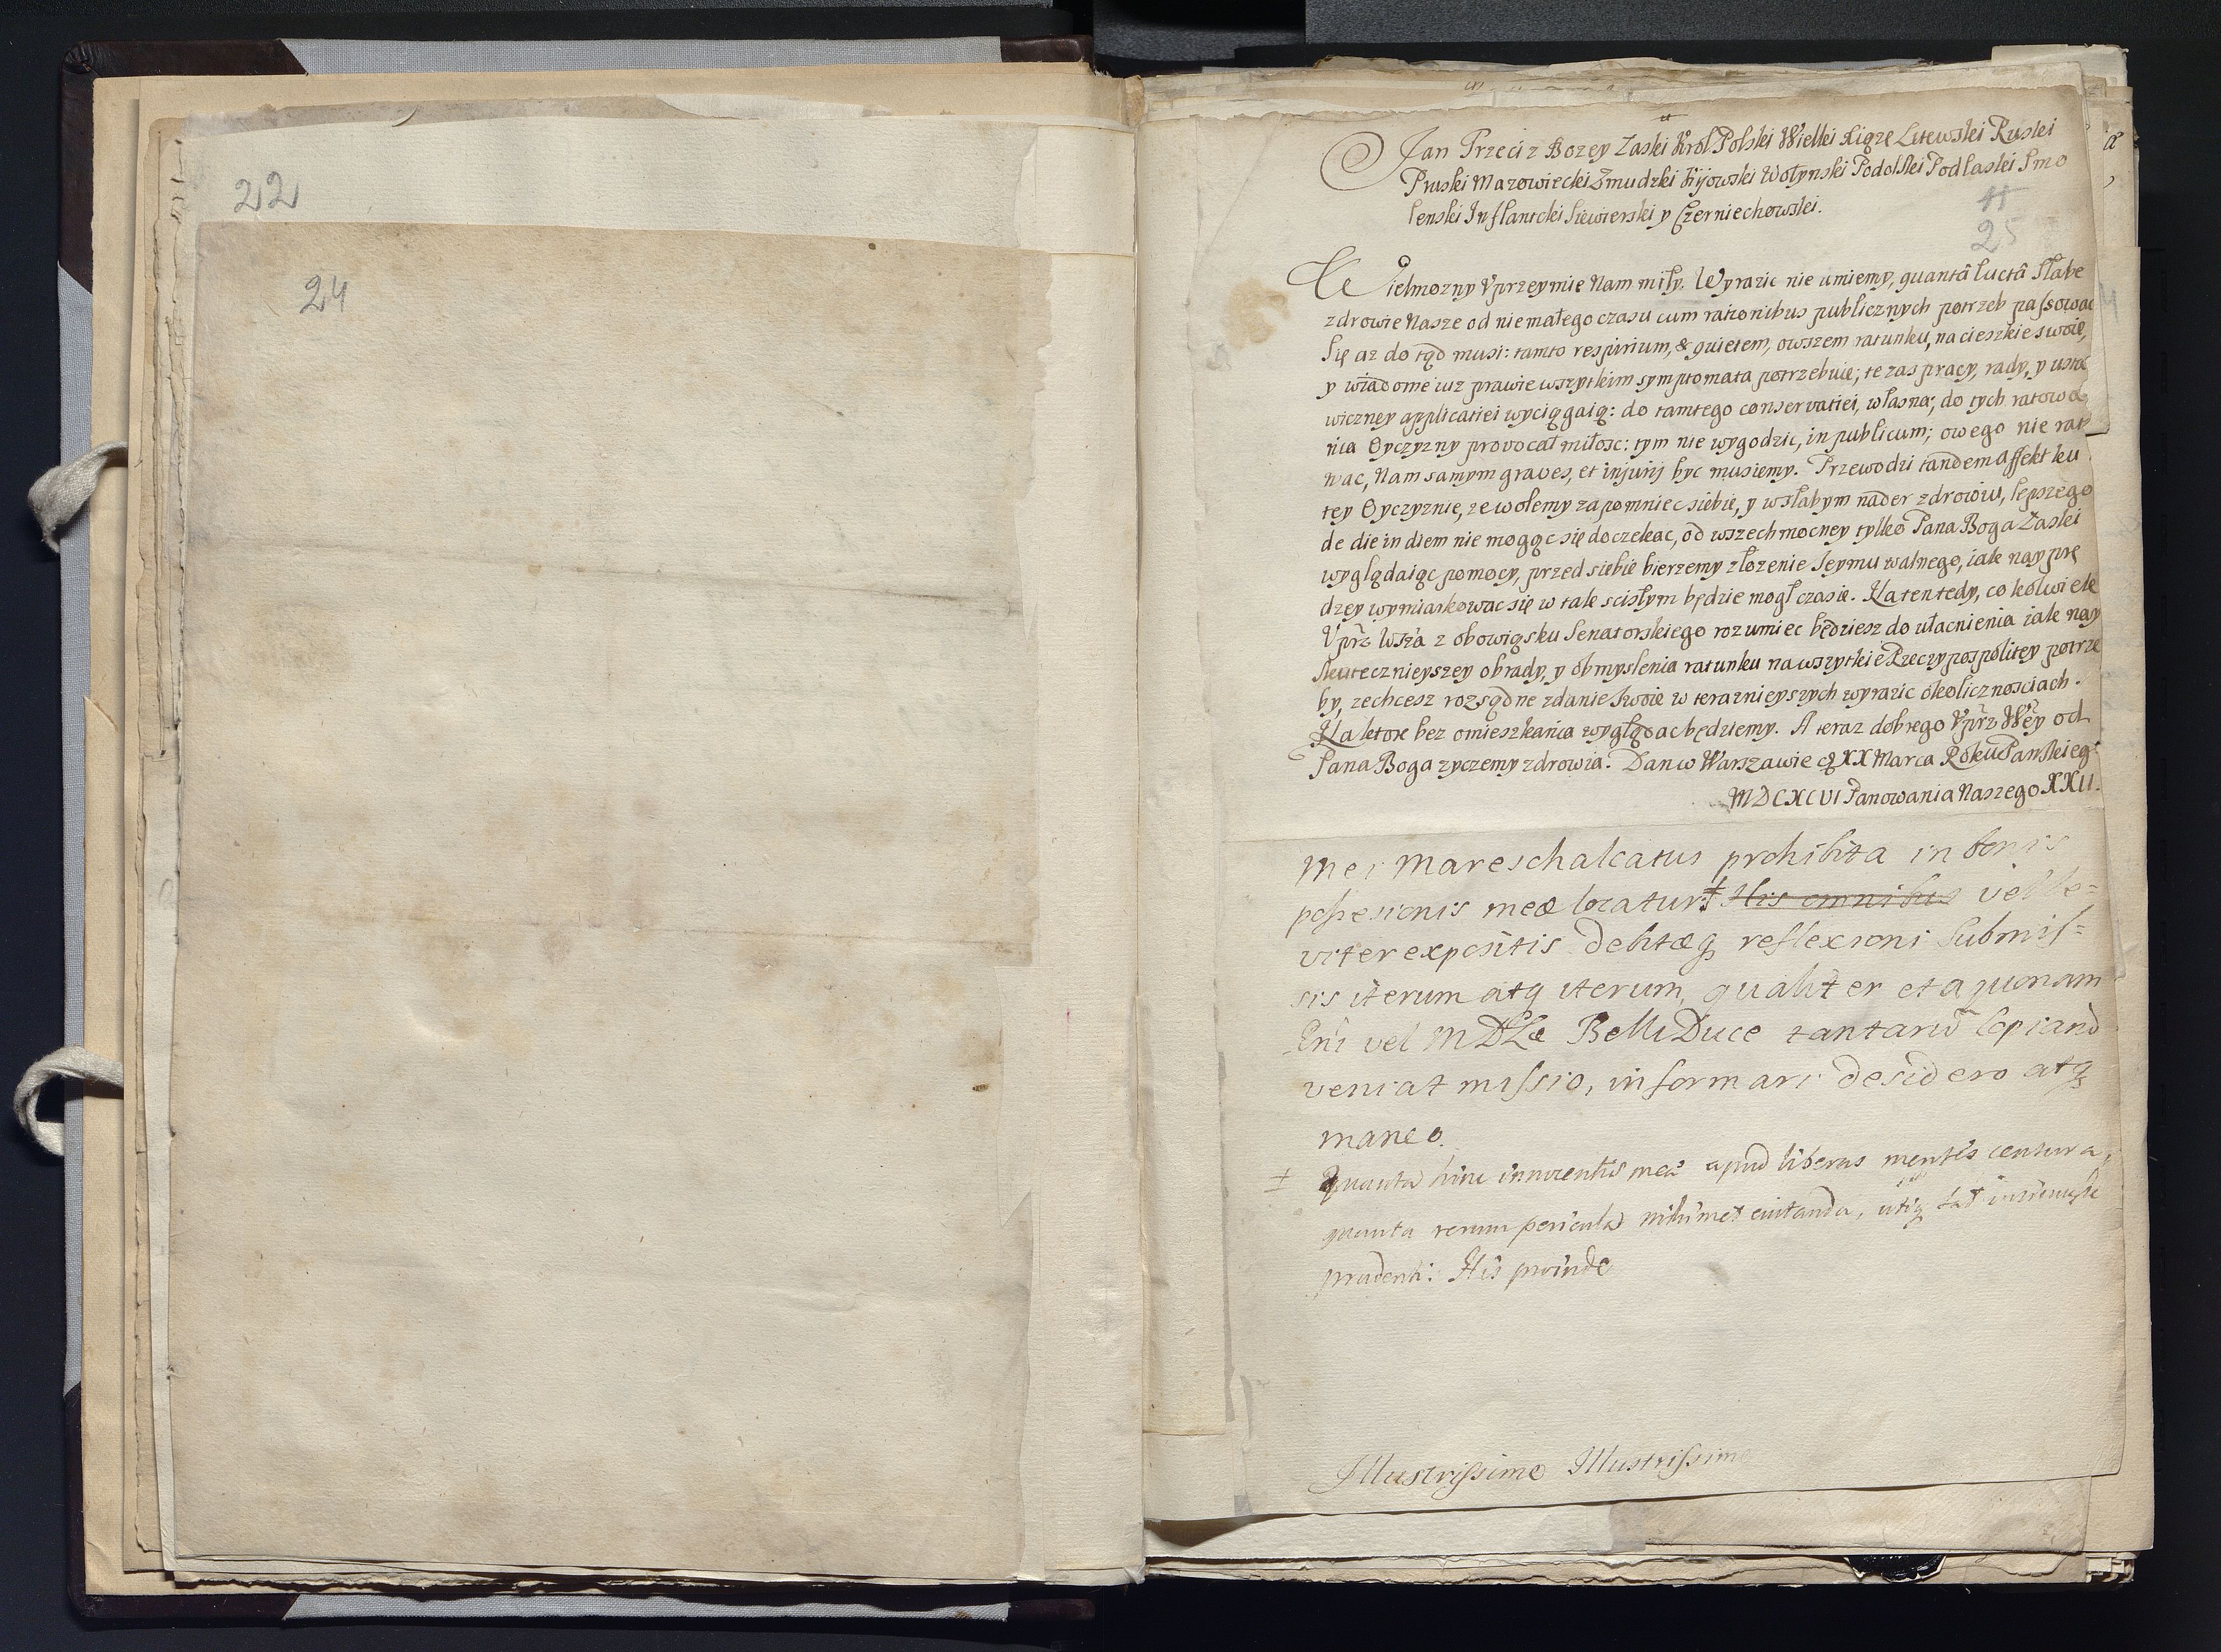 22
24
Jan Trzeci z Bozey Łaski Krol Polski Wielki Xiąze Litewski Ruski
Pruski Mazowiecki Zmudzki Kijowski Wołynski Podolski Podlaski Smo
lenski Inflantcki Siewierski y Czerniechowski.
25
Wielmozny Uprzeymie Nam miły. Wyrazic nie umiemy, quantâ luctâ słabe
zdrowie Nasze od niemałego czasu cum rationibus publicznych potrzeb passowac
się az do tąd musi: tamto respirium, & quietem, owszem ratunku, na cieszkie swoie,
y wiadome iuz prawie wszytkim symptomata potrzebuie; te zas pracy, rady, y usta
wiczney applicatiei wyciągaią: do tamtego conservatiei, własna; do tych ratowa
nia Oyczyzny provocat miłosc: tym nie wygodzic, in publicum; owego nie rato
wac, Nam samym graves, et injurij byc musiemy. Przewodzi tandem affekt ku
tey Oyczyznie, ze wolemy zapomniec siebie, y w słabym nader zdrowiu, lepszego
de die in diem nie mogąc się doczekac, od wszechmocney tylko Pana Boga Łaski
wyglądaiąc pomocy, przed siebie bierzemy złozenie Seymu walnego, iak nayprę
dzey wymiarkowac się w tak scisłym będzie mogł czasie. Na ten tedy, cokolwiek
Uprz Wsza z obowiąsku Senatorskiego rozumiec będziesz do ułacnienia iak nay
skutecznieyszey obrady, y obmyslenia ratunku na wszytkie Rzeczypospolitey potrze
by, zechcesz rozsądne zdanie swoie w teraznieyszych wyrazic okolicznosciach.
Na ktore bez omieszkania wyglądac będziemy. A teraz dobrego Uprz Wey od
Pana Boga zyczemy zdrowia. Dan w Warszawie d XX Marca Roku Panskieg
MDCXCVI Panowania Naszego XXII.
mei Mareschalcatus prohibita in bonis
possesionis meæ locatur ‡ His omnibus vel le=
viter expositis debitæq reflexioni submis=
sis iterum atq iterum, qualiter et a quonam
Rni vel MDLæ Belli Duce tantarū copiarū
veniat missio, informari desidero atq
maneo.
‡ Quanta hinc innocentiæ meæ apud liberas mentes censura,
quanta rerum pericula mihimet evitanda, utiq sat insinuasse
prudenti: His proinde
Illustrissime Illustrissime